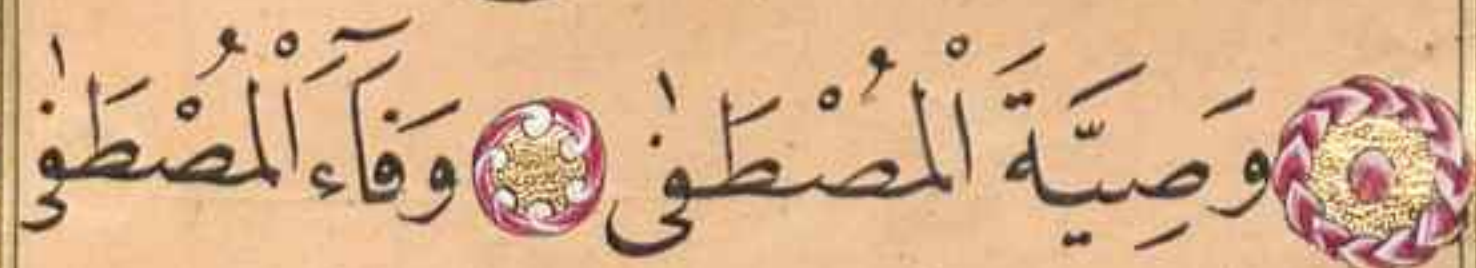 وَصِيَّةَ الْمُصْطَفٰى وَفَآءَ الْمُصْطَفٰى